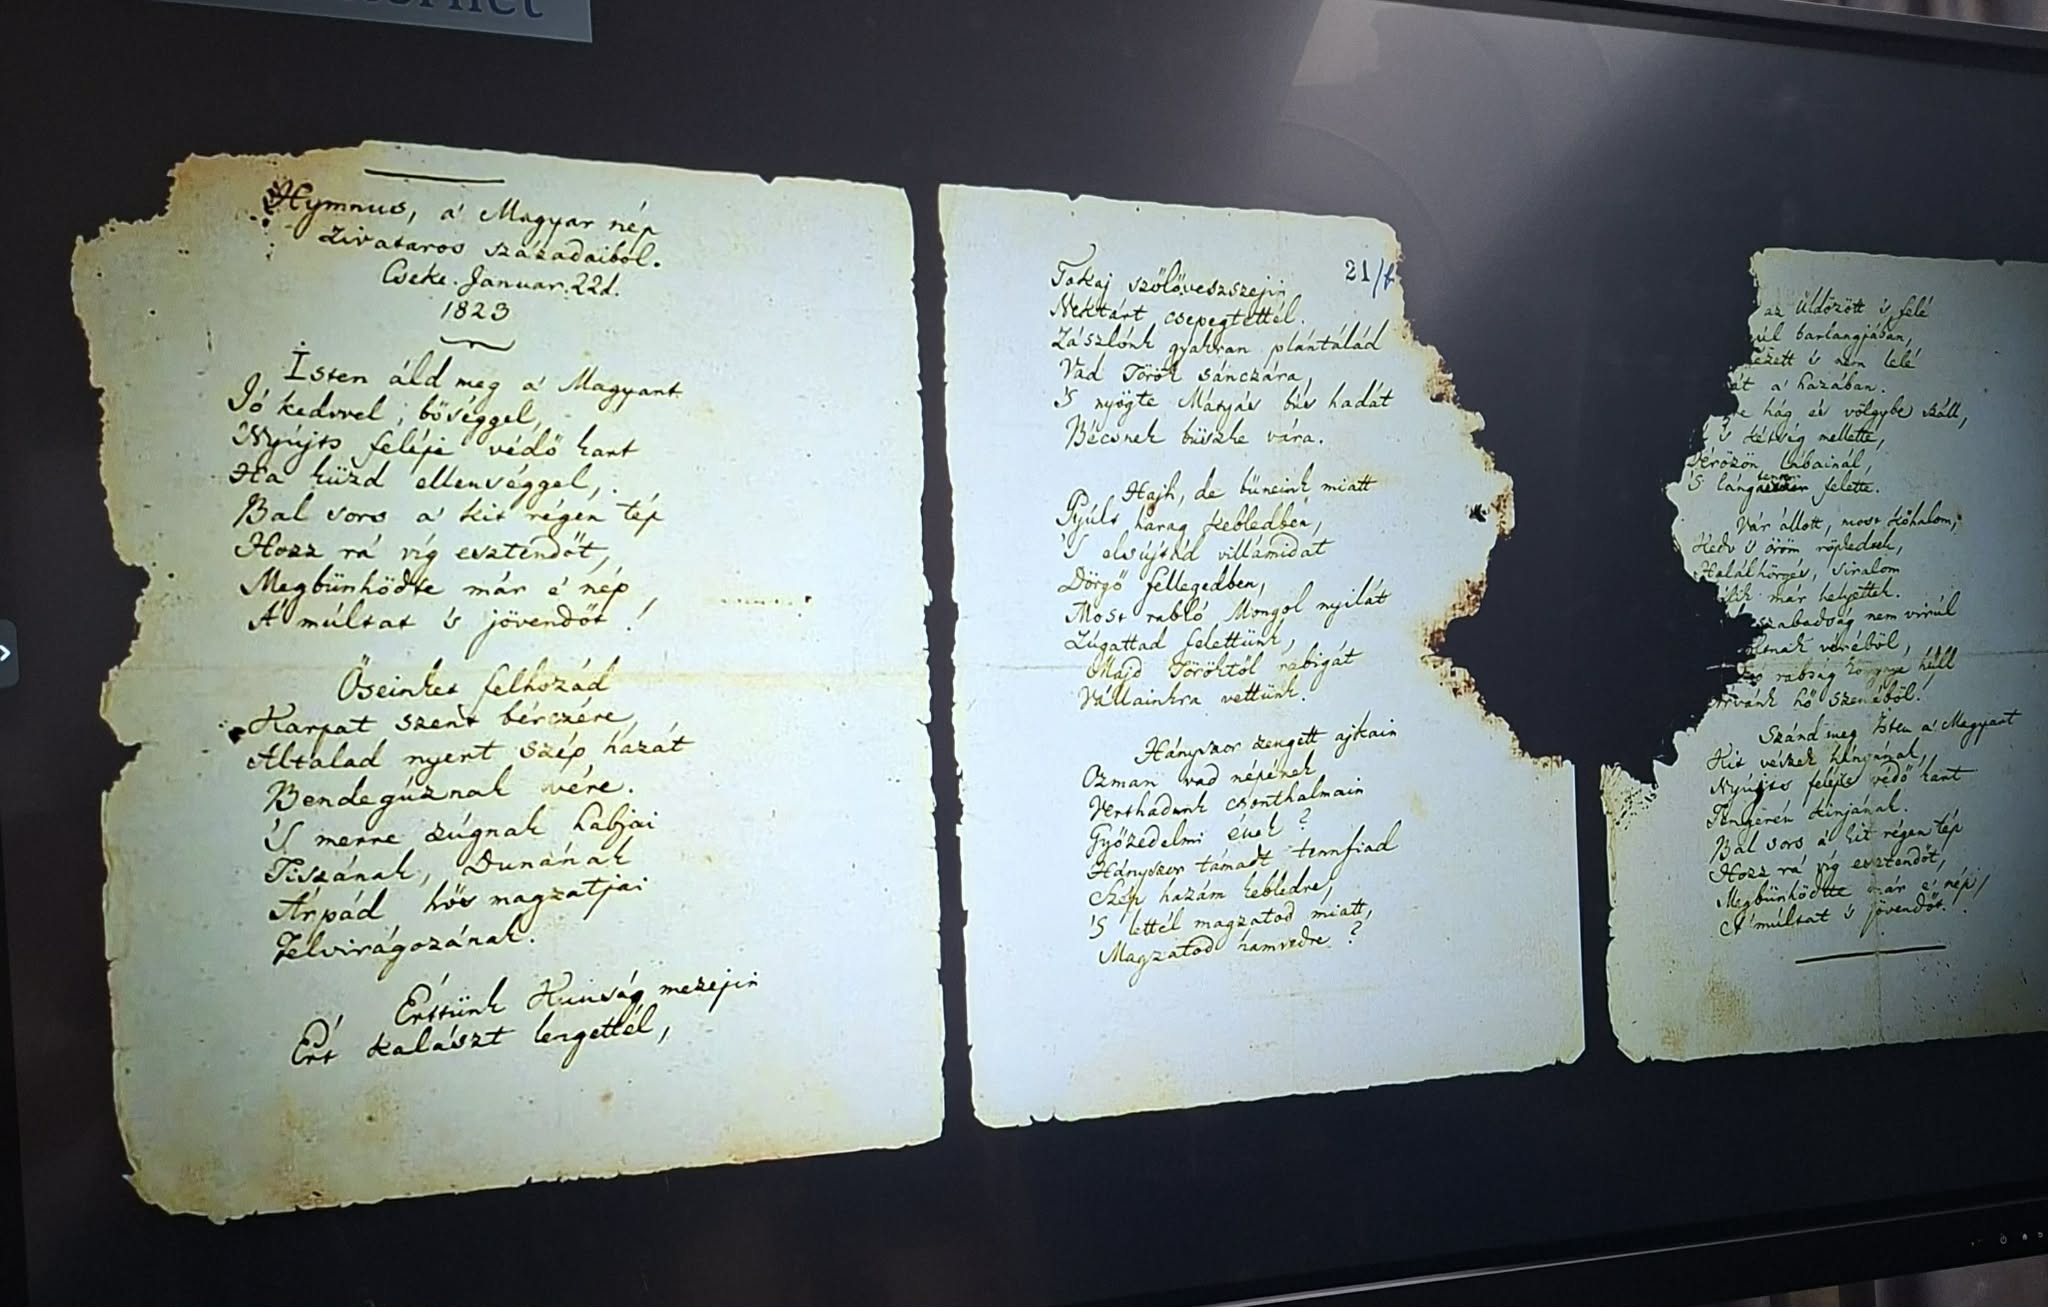 Hymnus, a' Magyar nép
zivataros századaiból.
Cseke. Januar. 22d.
1823
Isten áld meg a' Magyart
Jó kedvvel, bőséggel,
Nyújts feléje védő kart
Ha küzd ellenséggel,
Bal sors a' kit régen tép
Hozz rá víg esztendőt,
Megbünhödte már e' nép
A' múltat 's jövendőt!
Őseinket felhozád
Kárpát szent bérczére,
Általad nyert szép hazát
Bendegúznak vére.
'S merre zúgnak habjai
Tiszának, Dunának
Árpád hős magzatjai
Felvirágozának.
Értünk Kunság mezejin
Ért kalászt lengettél,
21/
Tokaj szőlőveszszejin
Nektárt csepegtettél.
Zászlónk gyakran plántálád
Vad Török sánczára,
'S nyögte Mátyás bús hadát
Bécsnek büszke vára.
Hajh, de bűneink miatt
Gyúlt harag kebledben,
'S elsújtád villámidat
Dörgő fellegedben,
Most rabló Mongol nyilát
Zúgattad felettünk,
Majd Töröktől rabigát
Vállainkra vettünk.
Hányszor zengett ajkain
Ozman vad népének
Vert hadunk csonthalmain
Győzedelmi ének?
Hányszor támadt tennfiad
Szép hazám kebledre,
'S lettél magzatod miatt,
Magzatod hamvedre?
az üldözött 's felé
barlangjában,
's nem lelé
a' hazában.
hág és völgybe száll,
's kétség mellette,
Vérözön lábainál,
'S lángtenger felette.
Vár állott, most kőhalom,
Kedv 's öröm röpkedtek,
Halálhörgés, siralom
már helyettek.
szabadság nem virúl
véréből,
rabság könnye hull
hő szeméből!
Szánd meg Isten a' Magyart
Kit vészek hányának,
Nyújts feléje védő kart
Tengerén kínjának.
Bal sors a' kit régen tép
Hozz rá víg esztendőt,
Megbünhödte már e' nép
A' múltat 's jövendőt.